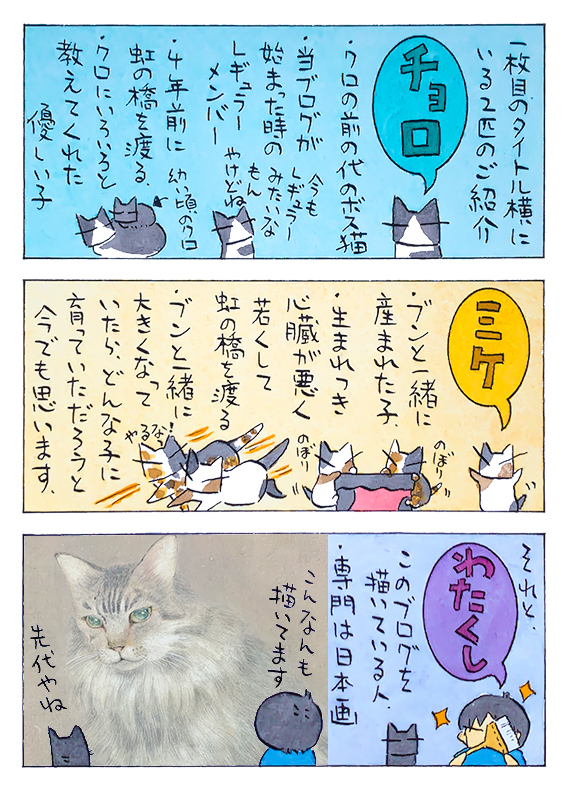 一枚目のタイトル横に
いる2匹のご紹介
チョロ
・クロの前の代のボス猫
・当ブログが
始まった時の
レギュラー
メンバー
今も
レギュラー
みたいな
もん
やけどね
・4年前に
虹の橋を渡る。
・クロにいろいろと
教えてくれた
優しい子
幼い頃のクロ
ミケ
・ブンと一緒に
産まれた子。
・生まれつき
心臓が悪く
若くして
虹の橋を渡る
・ブンと一緒に
大きくなって
いたら、どんな子に
育っていただろうと
今でも思います。
のぼり
のぼり
やるなっ!
それと、
わたくし
このブログを
描いている人。
・専門は日本画
こんなんも
描いてます
先代やね